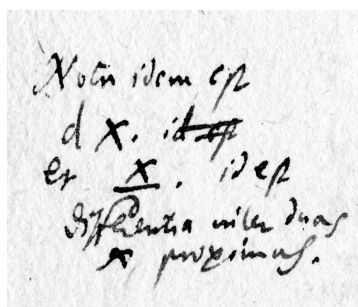 Nota idem est
d x. id est
et x/d . id est
differentia inter duas
x proximas.